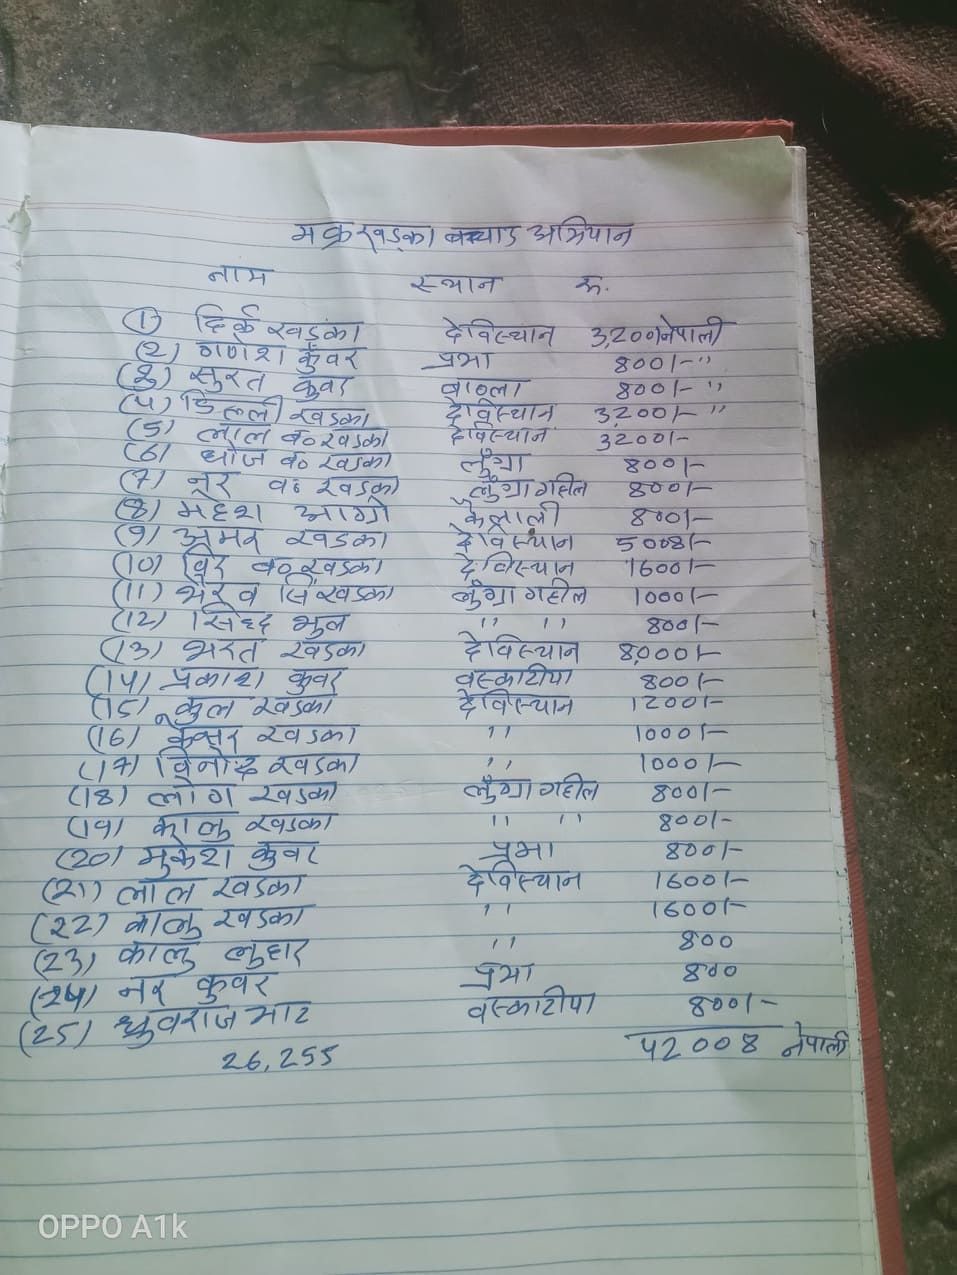 मकर खड्का बचाउ अभियान
नाम स्थान रू.
(1) दिर्क खड्का देविस्थान 3,200 नेपाली
(2) गणेश कुँवर प्रभा 800/- "
(3) सुरत कुवर वाठला 800/- "
(4) डिल्ली खड्का देविस्थान 3,200/- "
(5) लाल ब० खड्का देविस्थान 3200/-
(6) धोज ब० खड्का लुँग्रा 800/-
(7) नर ब० खड्का लुँग्रा गहील 800/-
(8) महेश आग्री कैलाली 800/-
(9) अमर खड्का देविस्थान 5008/-
(10) विर ब० खड्का देविस्थान 1600/-
(11) भैरव सिं खड्का लुँग्रा गहील 1000/-
(12) भुल " " 800/-
(13) भरत खड्का देविस्थान 8,000/-
(14) प्रकाश कुवर वस्काटीया 800/-
(15) कुल खड्का देविस्थान 1200/-
(16) केसर खड्का " 1000/-
(17) विनोद खड्का " 1000/-
(18) लोग खड्का लुँग्रा गहील 800/-
(19) कालु खड्का " " 800/-
(20) मुकेश कुवर प्रभा 800/-
(21) लाल खड्का देविस्थान 1600/-
(22) कालु खड्का " 1600/-
(23) कालु लुहार " 800
(24) नर कुवर प्रभा 800
(25) ध्रुवराज भाट वस्काटीया 800/-
26,255 42008 नेपाली
OPPO A1k